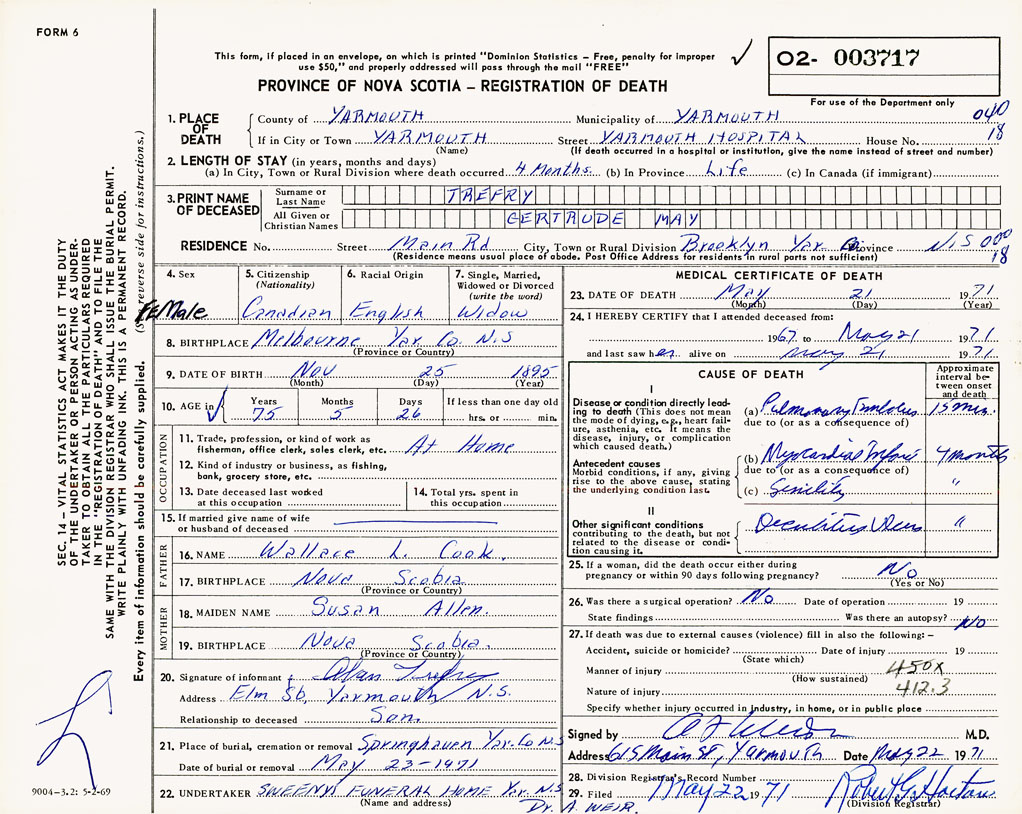 FORM 6
This form, if placed in an envelope, on which is printed "Dominion Statistics – Free, penalty for improper
use $50," and properly addressed will pass through the mail "FREE"
✓
O2- 003717
PROVINCE OF NOVA SCOTIA – REGISTRATION OF DEATH
For use of the Department only
1. PLACE OF DEATH
County of YARMOUTH Municipality of YARMOUTH 040
If in City or Town YARMOUTH Street YARMOUTH HOSPITAL House No. 18
(Name) (If death occurred in a hospital or institution, give the name instead of street and number)
2. LENGTH OF STAY (in years, months and days)
(a) In City, Town or Rural Division where death occurred 4 Months (b) In Province Life (c) In Canada (if immigrant)
3. PRINT NAME OF DECEASED
Surname or Last Name TREFRY
All Given or Christian Names GERTRUDE MAY
RESIDENCE No. Street Main Rd City, Town or Rural Division Brooklyn Yar. Co Province N.S 000
(Residence means usual place of abode. Post Office Address for residents in rural parts not sufficient) 18
4. Sex
FEMale
5. Citizenship
(Nationality)
Canadian
6. Racial Origin
English
7. Single, Married,
Widowed or Divorced
(write the word)
Widow
8. BIRTHPLACE Melbourne Yar. Co. N.S
(Province or Country)
9. DATE OF BIRTH Nov 25 1895
(Month) (Day) (Year)
10. AGE in ✓
Years 75
Months 5
Days 26
If less than one day old
hrs. or min.
OCCUPATION
11. Trade, profession, or kind of work as
fisherman, office clerk, sales clerk, etc. At Home
12. Kind of industry or business, as fishing,
bank, grocery store, etc.
13. Date deceased last worked
at this occupation
14. Total yrs. spent in
this occupation
15. If married give name of wife
or husband of deceased
FATHER
16. NAME Wallace L. Cook
17. BIRTHPLACE Nova Scotia
(Province or Country)
MOTHER
18. MAIDEN NAME Susan Allen.
19. BIRTHPLACE Nova Scotia.
(Province or Country)
20. Signature of informant Alan Trefry
Address Elm St, Yarmouth N.S.
Relationship to deceased Son.
21. Place of burial, cremation or removal Springhaven Yar. Co N.S
Date of burial or removal May 23-1971
22. UNDERTAKER SWEENY FUNERAL HOME Yar. N.S
(Name and address)
Dr. A. WEIR.
MEDICAL CERTIFICATE OF DEATH
23. DATE OF DEATH May 21 1971
(Month) (Day) (Year)
24. I HEREBY CERTIFY that I attended deceased from:
1967 to May 21 1971
and last saw her alive on May 21 1971
CAUSE OF DEATH
Approximate
interval be-
tween onset
and death
I
Disease or condition directly lead-
ing to death (This does not mean
the mode of dying, e.g., heart fail-
ure, asthenia, etc. It means the
disease, injury, or complication
which caused death.)
(a) Pulmonary Embolus 15 min.
due to (or as a consequence of)
Antecedent causes
Morbid conditions, if any, giving
rise to the above cause, stating
the underlying condition last.
(b) Myocardial Infarct 4 months
due to (or as a consequence of)
(c) Senility "
II
Other significant conditions
contributing to the death, but not
related to the disease or condi-
tion causing it.
Decubitus Ulcers "
25. If a woman, did the death occur either during
pregnancy or within 90 days following pregnancy? No
(Yes or No)
26. Was there a surgical operation? No Date of operation 19
State findings Was there an autopsy? No
27. If death was due to external causes (violence) fill in also the following: –
Accident, suicide or homicide? Date of injury 19
(State which)
Manner of injury 450X
(How sustained)
Nature of injury 412.3
Specify whether injury occurred in industry, in home, or in public place
Signed by M.D.
Address 615 Main St, Yarmouth Date May 22 1971
28. Division Registrar's Record Number
29. Filed May 22 1971 Robert G. Horton
(Division Registrar)
SEC. 14 – VITAL STATISTICS ACT MAKES IT THE DUTY
OF THE UNDERTAKER OR PERSON ACTING AS UNDER-
TAKER TO OBTAIN ALL THE PARTICULARS REQUIRED
IN THE "REGISTRATION OF DEATH" AND TO FILE THE
SAME WITH THE DIVISION REGISTRAR WHO SHALL ISSUE THE BURIAL PERMIT.
WRITE PLAINLY WITH UNFADING INK. THIS IS A PERMANENT RECORD.
Every item of information should be carefully supplied. (See reverse side for instructions.)
9004–3.2: 5-2-69